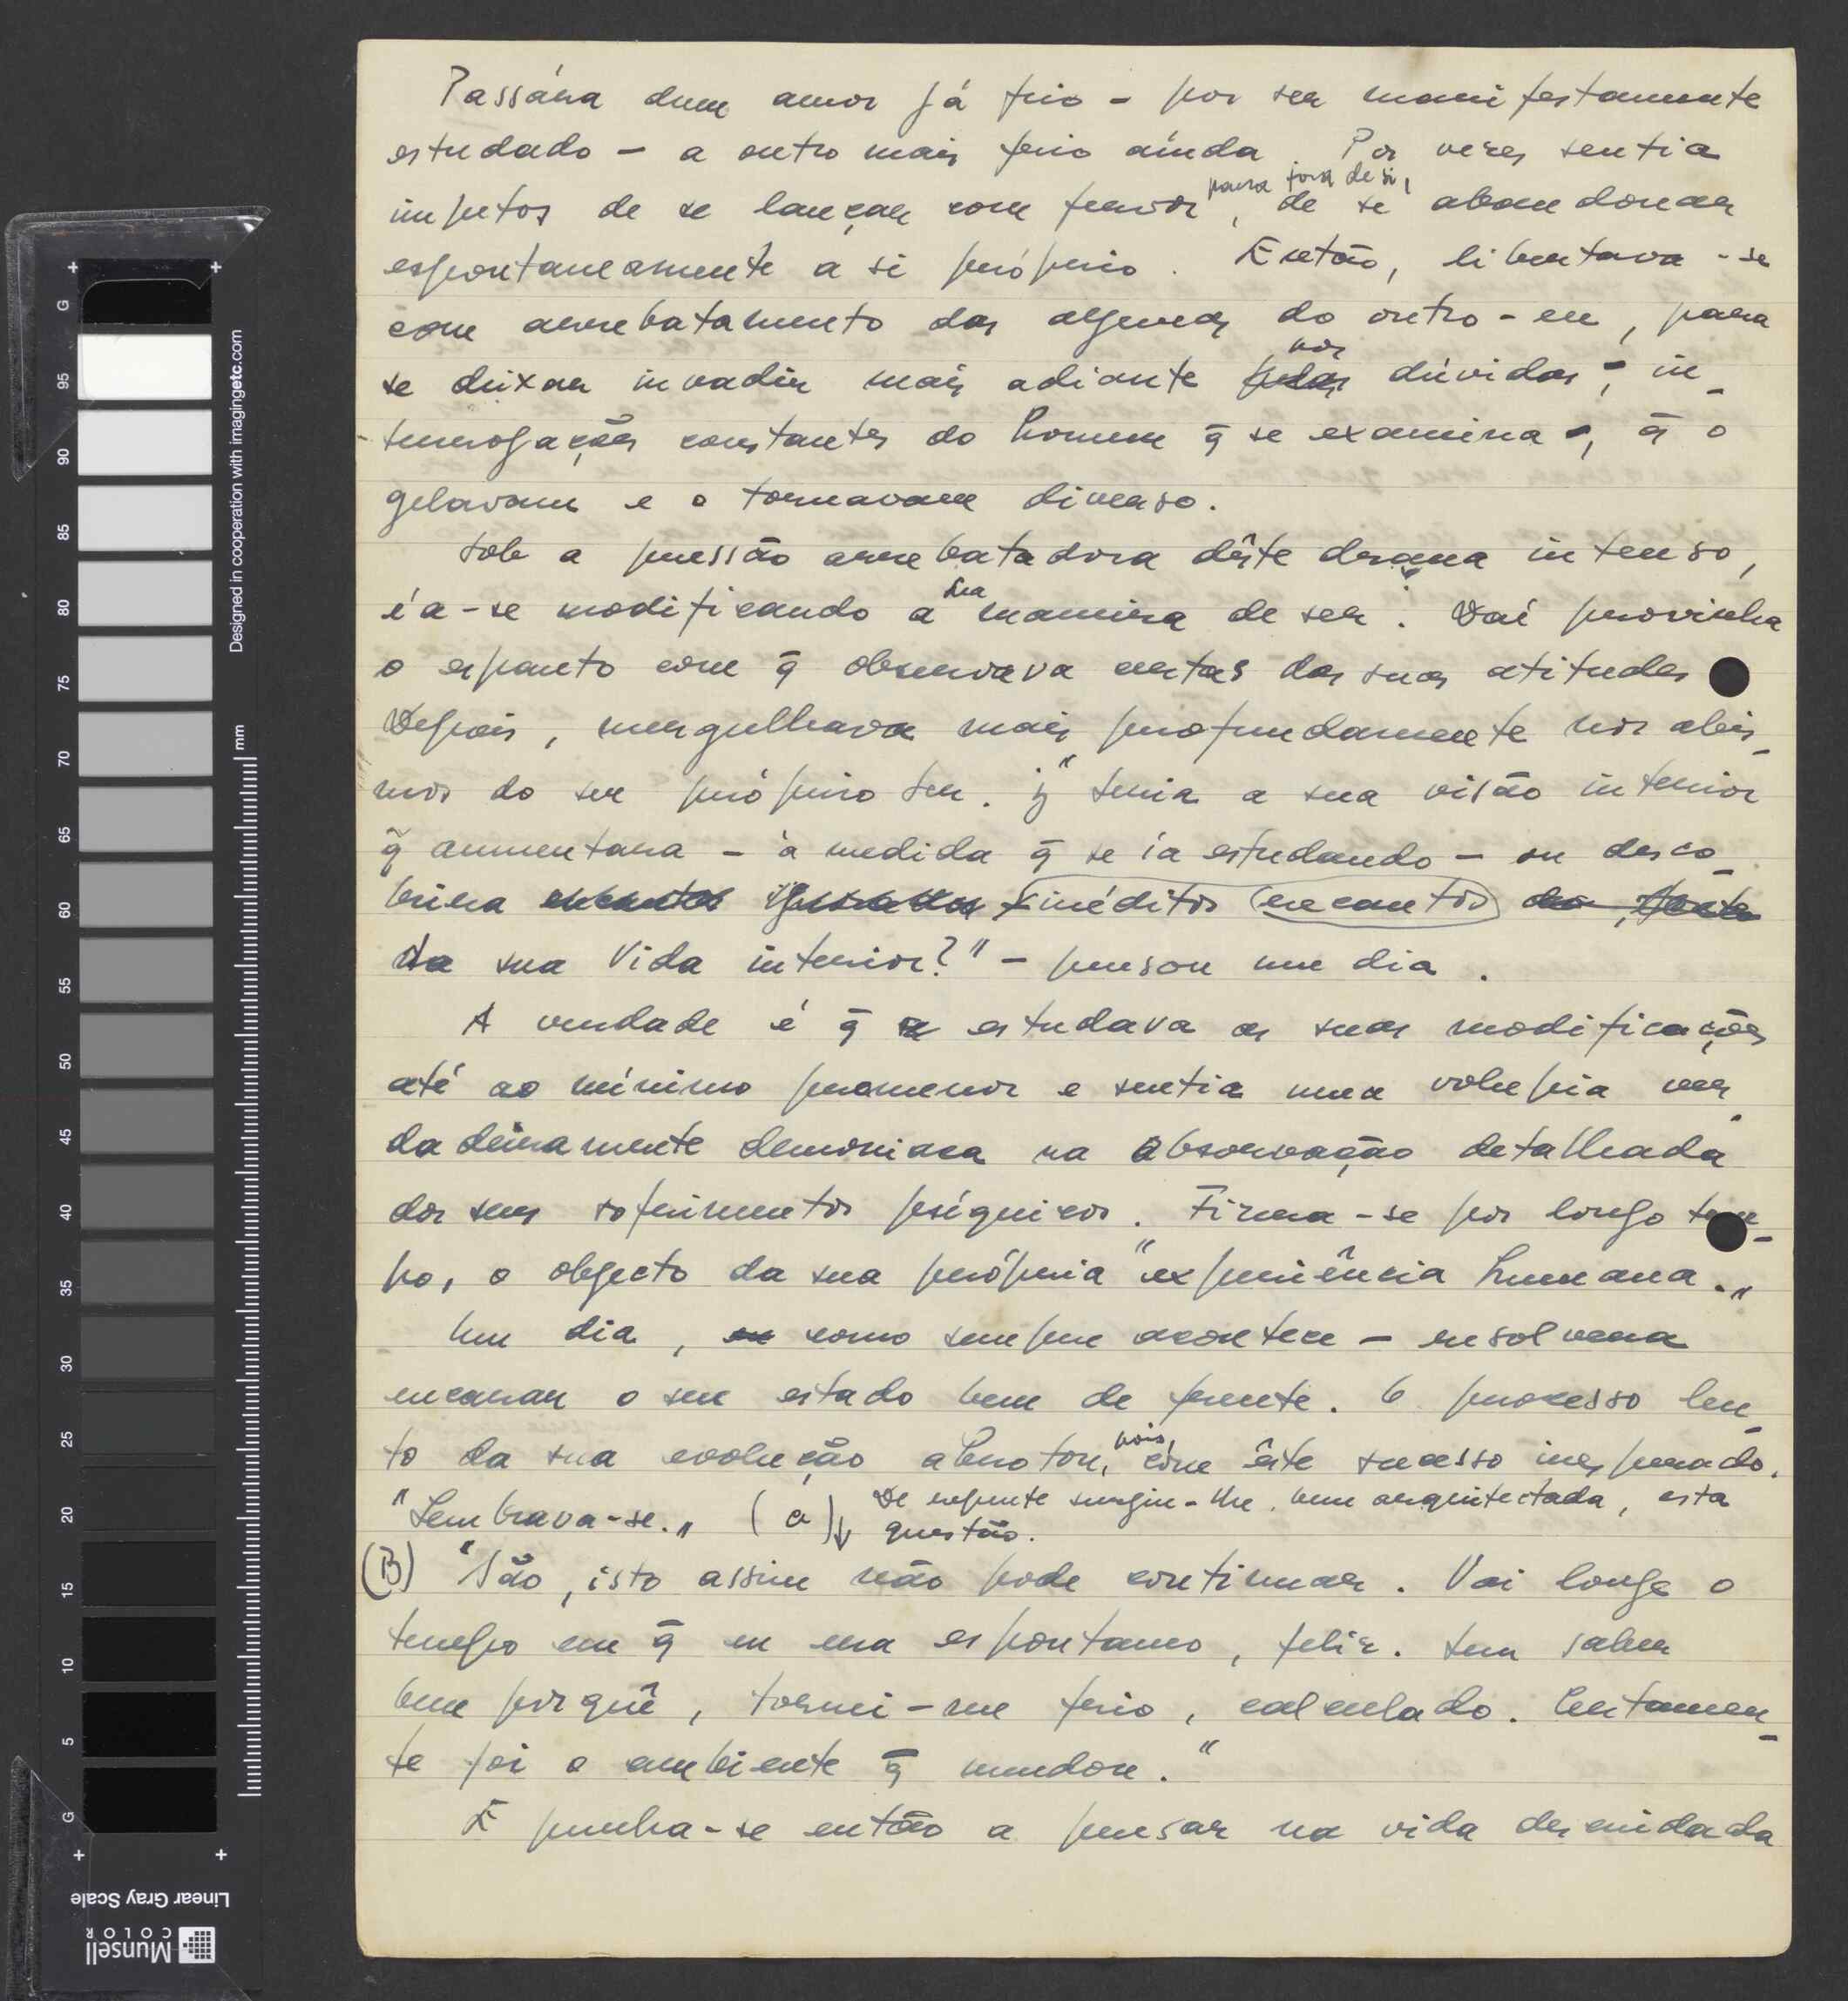 Passára dum amor já frio - por ser manifestamente
estudado - a outro mais frio aínda Por vezes sentia
para fora de si,
impetos de se lançar com fervor, de se abandonar
espontaneamente a si próprio. Então, libertava-se
com arrebatamento das algemas do outro-eu, para
nas
se deixar invadir mais adiante pelas dúvidas; in-
-terrogações constantes do homem q̄ se examina, q̄ o
gelavam e o tornavam diverso.
Sob a pressão arrebatadora dêste drama intenso,
sua
ía-se modificando a maneira de ser. Daí provinha
o espanto com q̄ observava certas das suas atitudes
Depois, mergulhava mais profundamente nos abis-
mos do ser próprio ser. "Seria a sua visão interior
q̄ aumentara - à medida q̄ se ía estudando - ou desco-
brira encantos inéditos (encantos)
da sua Vida interior?" - pensou um dia.
A verdade é q̄ se estudava as suas modificações
até ao mínimo promenor e sentia uma volupia ver-
dadeiramente demoniaca na observação detalhada
dos seus sofrimentos psíquicos. Fizera-se por longo tem-
po, o objecto da sua própria "experiência humana."
Um dia, como sempre acontece - resolvera
encarar o seu estado bem de frente. O processo len-
pois,
to da sua evolução abortou, com êste sucesso inesperado.
De repente surgiu-lhe, bem arquitectada, esta
"Lembrava-se." (a)↓ questão.
(B) "Não, isto assim não pode continuar. Vai longe o
tempo em q̄ eu era espontaneo, feliz. Sem saber
bem porquê, tornei-me frio, calculado. Certamen-
te foi o ambiente q̄ mudou."
E punha-se então a pensar na vida descuidada
Designed in cooperation with imagingetc.com
mm
G
95
90
85
80
75
70
65
60
55
50
45
40
35
30
25
20
15
10
5
G
Linear Gray Scale
Munsell
COLOR